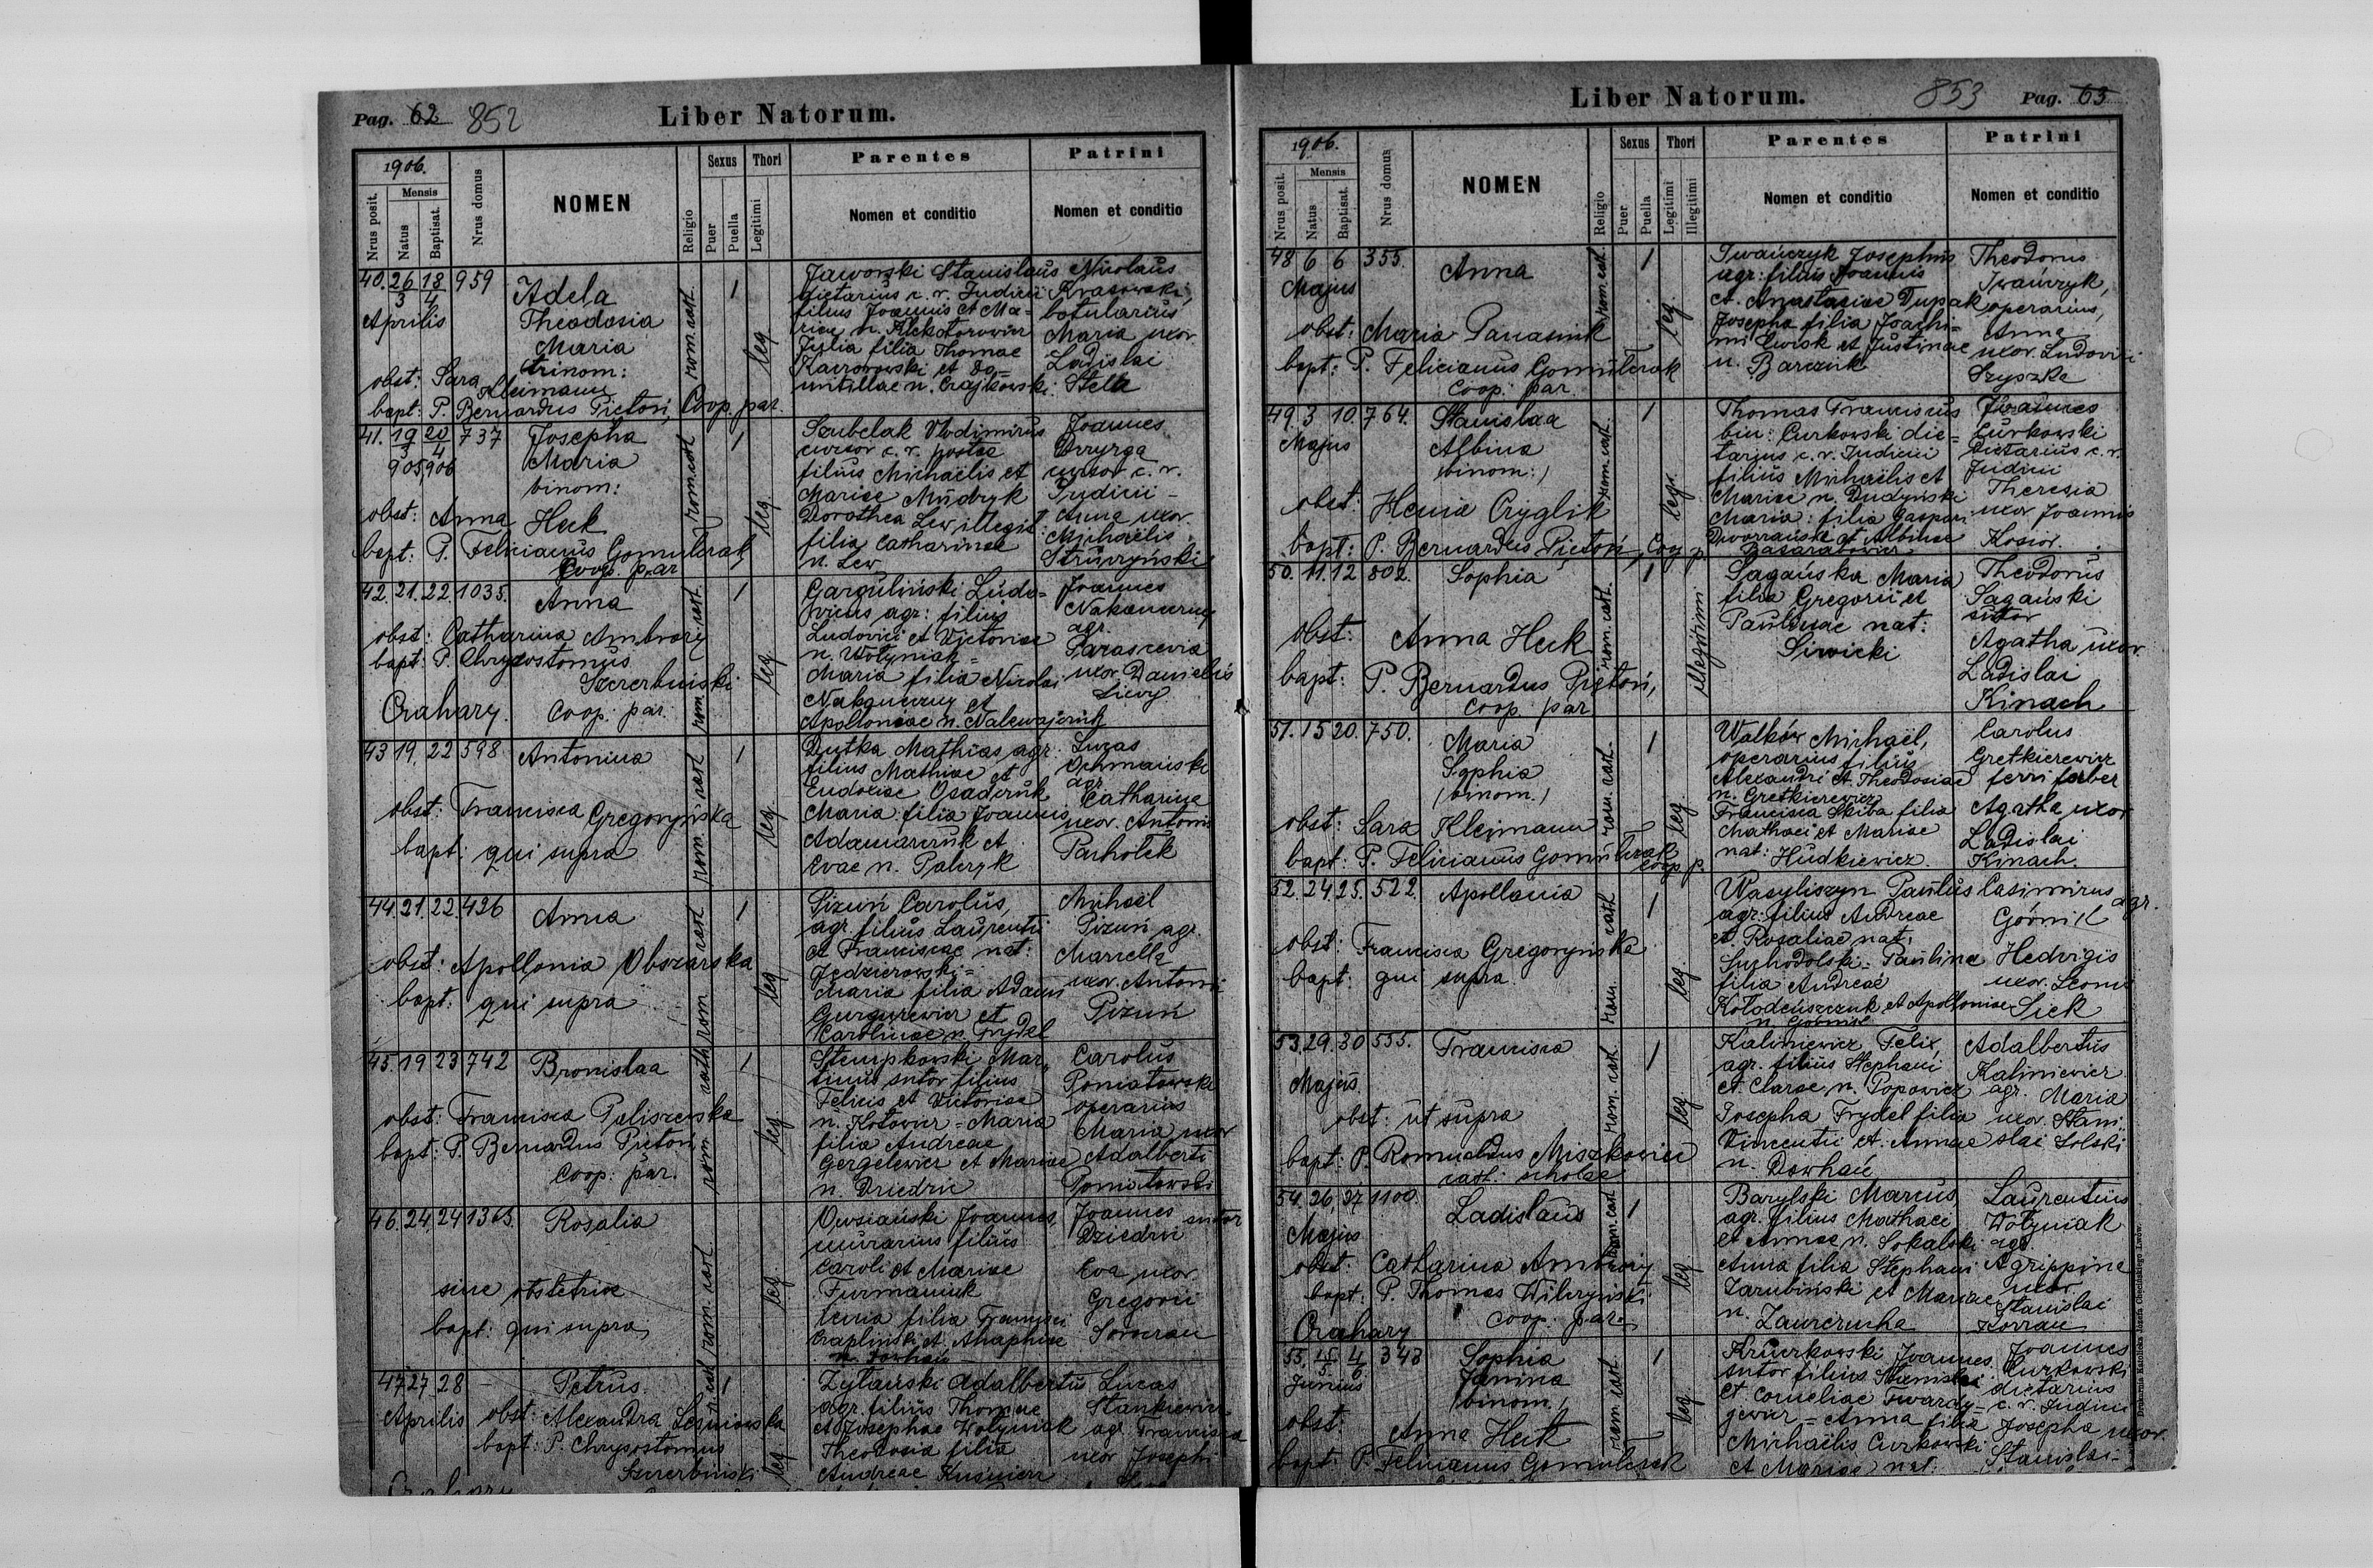 Pag. 62 852 Liber Natorum.
1906.
Nrus posit.
Mensis
Natus
Baptisat.
Nrus domus
NOMEN
Religio
Sexus
Puer
Puella
Thori
Legitimi
Parentes
Nomen et conditio
Patrini
Nomen et conditio
40. 26/3 18/4 959
Aprilis
Adela
Theodosia
Maria
trinom:
obst: Sara
Kleimann
bapt: P. Bernardus Pietoń, Coop. par.
rom. cat.
1
leg
Jaworski Stanislaus
dietarius c. r. Judicii
filius Joannis et Ma=
riae n.
Julia filia Thomae
et Do=
mitillae n. Czajkowski
Nicolaus
Krasowski,
botularius
Maria uxor
Ladislai
Stell
41. 19/3 20/4 737
905, 906
Josepha
Maria
binom:
obst: Anna Heck
bapt: P. Felicianus Gomulczak,
Coop. par
rom. cat
1
leg.
Szubelak Vlodimirus
cursor c. r. postae
filius Michaelis et
Mariae Mudryk
Dorothea Lew illegit.
filia Catharinae
n. Lew
Joannes
Dzyrga
cursor c. r.
Judicii -
Anna uxor
Michaelis
Struczyński
42. 21. 22. 1035.
Anna
obst: Catharina Ambroży
bapt: P. Chryzostomus
Szczerbiński
Czahary. Coop. par.
rom. cat.
1
leg.
Garguliński Ludo=
vicus agr: filius
Ludovici et Victoriae
n. Wołyniak=
Maria filia Nicolai
Nakoneczny et
Apolloniae n. Nalewajczuk
Joannes
Nakoneczny
agr.
Parascevia
uxor Danielis
43 19, 22 598
Antonina
obst: Francisca Gregoryńska
bapt: qui supra
rom. cat
1
leg
Dutka Mathias agr.
filius Mathiae et
Eudoxiae Osadczuk
Maria filia Joannis
Adamarczuk et
Evae n. Palczyk
Lucas
Ochmański
agr.
Catharina
uxor. Antonii
Pachołek
44. 21. 22. 426
Anna
obst: Apollonia Obszarska
bapt. qui supra
rom cat
1
leg
Pizuń Carolus,
agr. filius Laurentii
et Franciscae nat:
Jędzierowski=
Maria filia Adami
Gurgurewicz et
Carolinae n. Frydel
Michaël
Pizuń agr.
Marcella
uxor. Antonii
Pizuń
45. 19 23 742
Bronislaa
obst: Francisca Paliszewska
bapt: P. Bernardus Pietoń
Coop. par.
rom cath
1
leg
Stempkowski Mar=
tinus sutor filius
Felicis et Victoriae
n. Kotowicz = Maria
filia Andreae
Gergelewicz et Mariae
n. Dziedzic
Carolus
Poniatowski
operarius
Maria uxor
Adalberti
Poniatowski
46. 24, 24 1363.
Rosalia
sine obstetrice
bapt: qui supra,
rom. cat
leg
Owsiański Joannes,
murarius filius
Caroli et Mariae
Furmaniuk
filia Francisci
Czapliński et Anaphiae
n. Dowhań
Joannes sutor
Dziedzic
Eva uxor.
Gregorii
47 27, 28 -
Aprilis
Petrus.
obst: Alexandra Leśniewska
bapt: P. Chrysostomus
Szczerbiński
Czahary
1
leg
Żylański Adalbertus
agr. filius Thomae
et Josephae Wołyniak
Theodosia filia
Andreae Kuśnierz
Lucas
Stankiewicz
agr. Francisca
uxor Josephi
Liber Natorum. 853 Pag. 63
1906.
Nrus posit.
Mensis
Natus
Baptisat.
Nrus domus
NOMEN
Religio
Sexus
Puer
Puella
Thori
Legitimi
Illegitimi
Parentes
Nomen et conditio
Patrini
Nomen et conditio
48 6 6 355.
Majus
Anna
obst: Maria Panasiuk
bapt: P. Felicianus Gomulczak
Coop. par.
rom. cat.
1
leg.
Iwańczyk Josephus
agr: filius Joannis
et Anastasiae Dupak
Josepha filia Joachi=
mi et Justinae
n. Barczuk
Theodorus
Iwańczyk,
operarius,
Anna
uxor. Ludovici
Szyszka
49. 3 10. 764.
Majus
Stanislaa
Albina
binom:)
obst: Henia Cryglik
bapt: P. Bernardus Pietoń, Coop p.
rom. cat.
1
leg.
Thomas Franciscus
bin: Curkowski die=
tarius c. r. Judicii
filius Michaëlis et
Mariae n. Dudyński
Maria: filia Gaspari
Dworzański et Albinae
Basarabowicz
Joannes
Curkowski
Dietarius c. r.
Judicii
Theresia
uxor Joannis
Kosior.
50. 11. 12 802.
Sophia
obst: Anna Heck
bapt: P. Bernardus Pietoń,
Coop. par
rom. cath.
1
illegitimi
Sagańska Maria
filia Gregorii et
Paulinae nat:
Siwicki
Theodorus
Sagański
sutor
Agatha uxor
Ladislai
Kinach
51. 15 20. 750.
Maria
Sophia
(binom.)
obst: Sara Kleimann
bapt: P. Felicianus Gomulczak
coop p.
rom. cat.
1
leg
Walków Michaël,
operarius filius
Alexandri et Theodosiae
n. Gretkierewicz
Francisca Skiba filia
Mathaei et Mariae
nat: Hudkiewicz.
Carolus
Gretkierewicz
ferri faber
Agatha uxor
Ladislai
Kinach
52. 24. 25. 522.
Apollonia
obst: Francisca Gregoryńska
bapt: qui supra
rom. cath
1
leg.
Wasyliszyn Paulus
agr: filius Andreae
et Rosaliae nat:
Suchodolski = Paulina
filia Andreae
Kołodeńszczuk et Apolloniae
n. Górnik
Casimirus agr.
Górnik
Hedvigis
uxor. Leonis
Sick
53. 29. 30 555.
Majus
Francisca
obst: ut supra
bapt: P. Romualdus Miszkowicz
cat: scholae
rom. cat.
1
leg
Kaliniewicz Felix,
agr. filius Stephani
et Clarae n. Popowicz
Josepha Frydel filia
Vincentii et Annae
n. Dowhań
Adalbertus
Kaliniewicz
agr. Maria
uxor. Stani=
slai Solski
54. 26, 27 1100.
Majus
Ladislaus
obst: Catharina Ambroży
bapt. P. Thomas Wilczyński
Czahary coop. par.
rom. cat
1
leg
Barylski Marcus
agr. filius Mathaei
et Annae n. Sokalski
Anna filia Stephani
Zarubiński et Mariae
n. Zaurczucha
Laurentius
Wołyniak
agr.
Agrippina
uxor
Stanislai
55. 15/5 4/6 348
Junius
Sophia
Janina
binom.)
obst: Anna Heck
bapt: P. Felicianus Gomulczak
rom. cat.
1
leg
Kruczkowski Joannes
sutor filius Stanislai
et Corneliae Twardy=
jewicz = Anna filia
Michaëlis Curkowski
et Mariae nat:
Joannes
Curkowski
dietarius
c. r. Judicii
Josepha uxor.
Stanislai-
Drukarnia Katolicka Józefa Chęcińskiego Lwów.